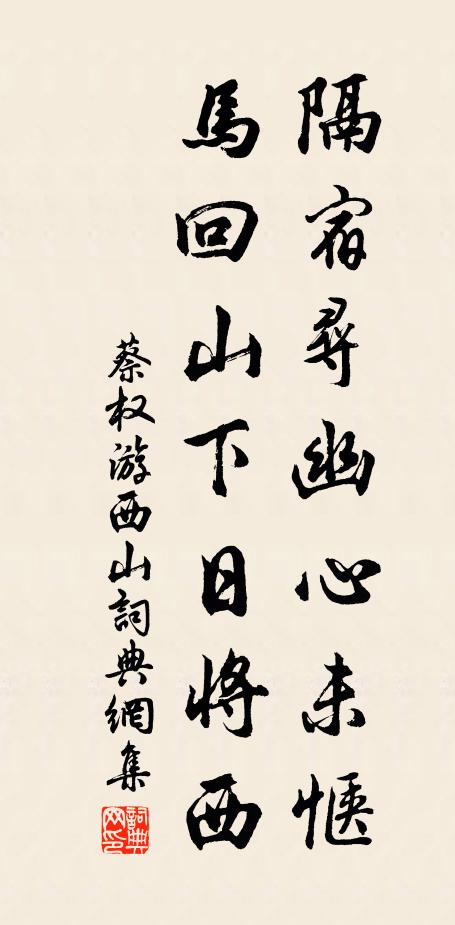 隔宿尋幽心未愜
馬回山下日將西
蔡权游西山詞典網集
詞典網印